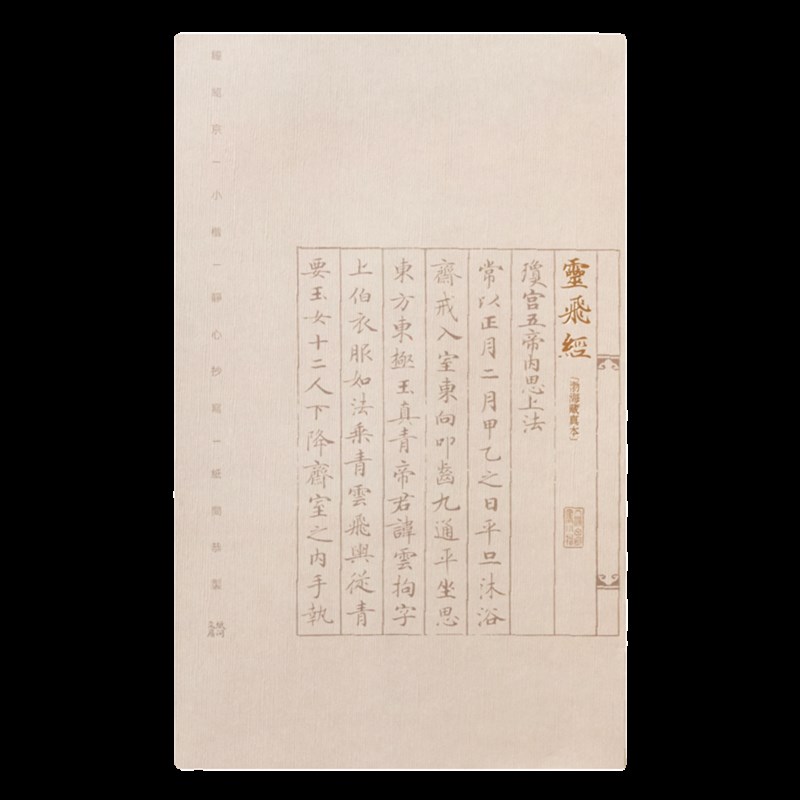 靈飛經
「渤海藏真本」
瓊宫五帝内思上法
常以正月二月甲乙之日平旦沐浴
齋戒入室東向叩齒九通平坐思
東方東極玉真青帝君諱雲拘字
上伯衣服如法乘青雲飛輿從青
要玉女十二人下降齋室之内手執
小楷
靜心抄寫